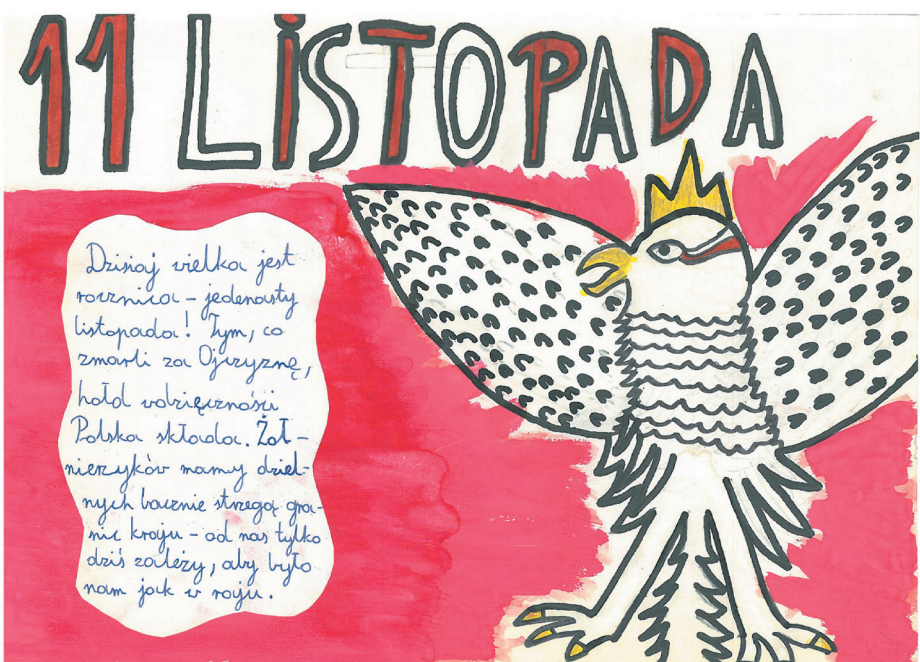 11 LiSTOPADA
Dzisiaj wielka jest
rocznica - jedenasty
listopada! Tym, co
zmarli za Ojczyznę,
hołd wdzięczności
Polska składa. Żoł-
nierzyków mamy dziel-
nych bacznie strzegą gra-
nic kraju - od nas tylko
dziś zależy, aby było
nam jak w raju.